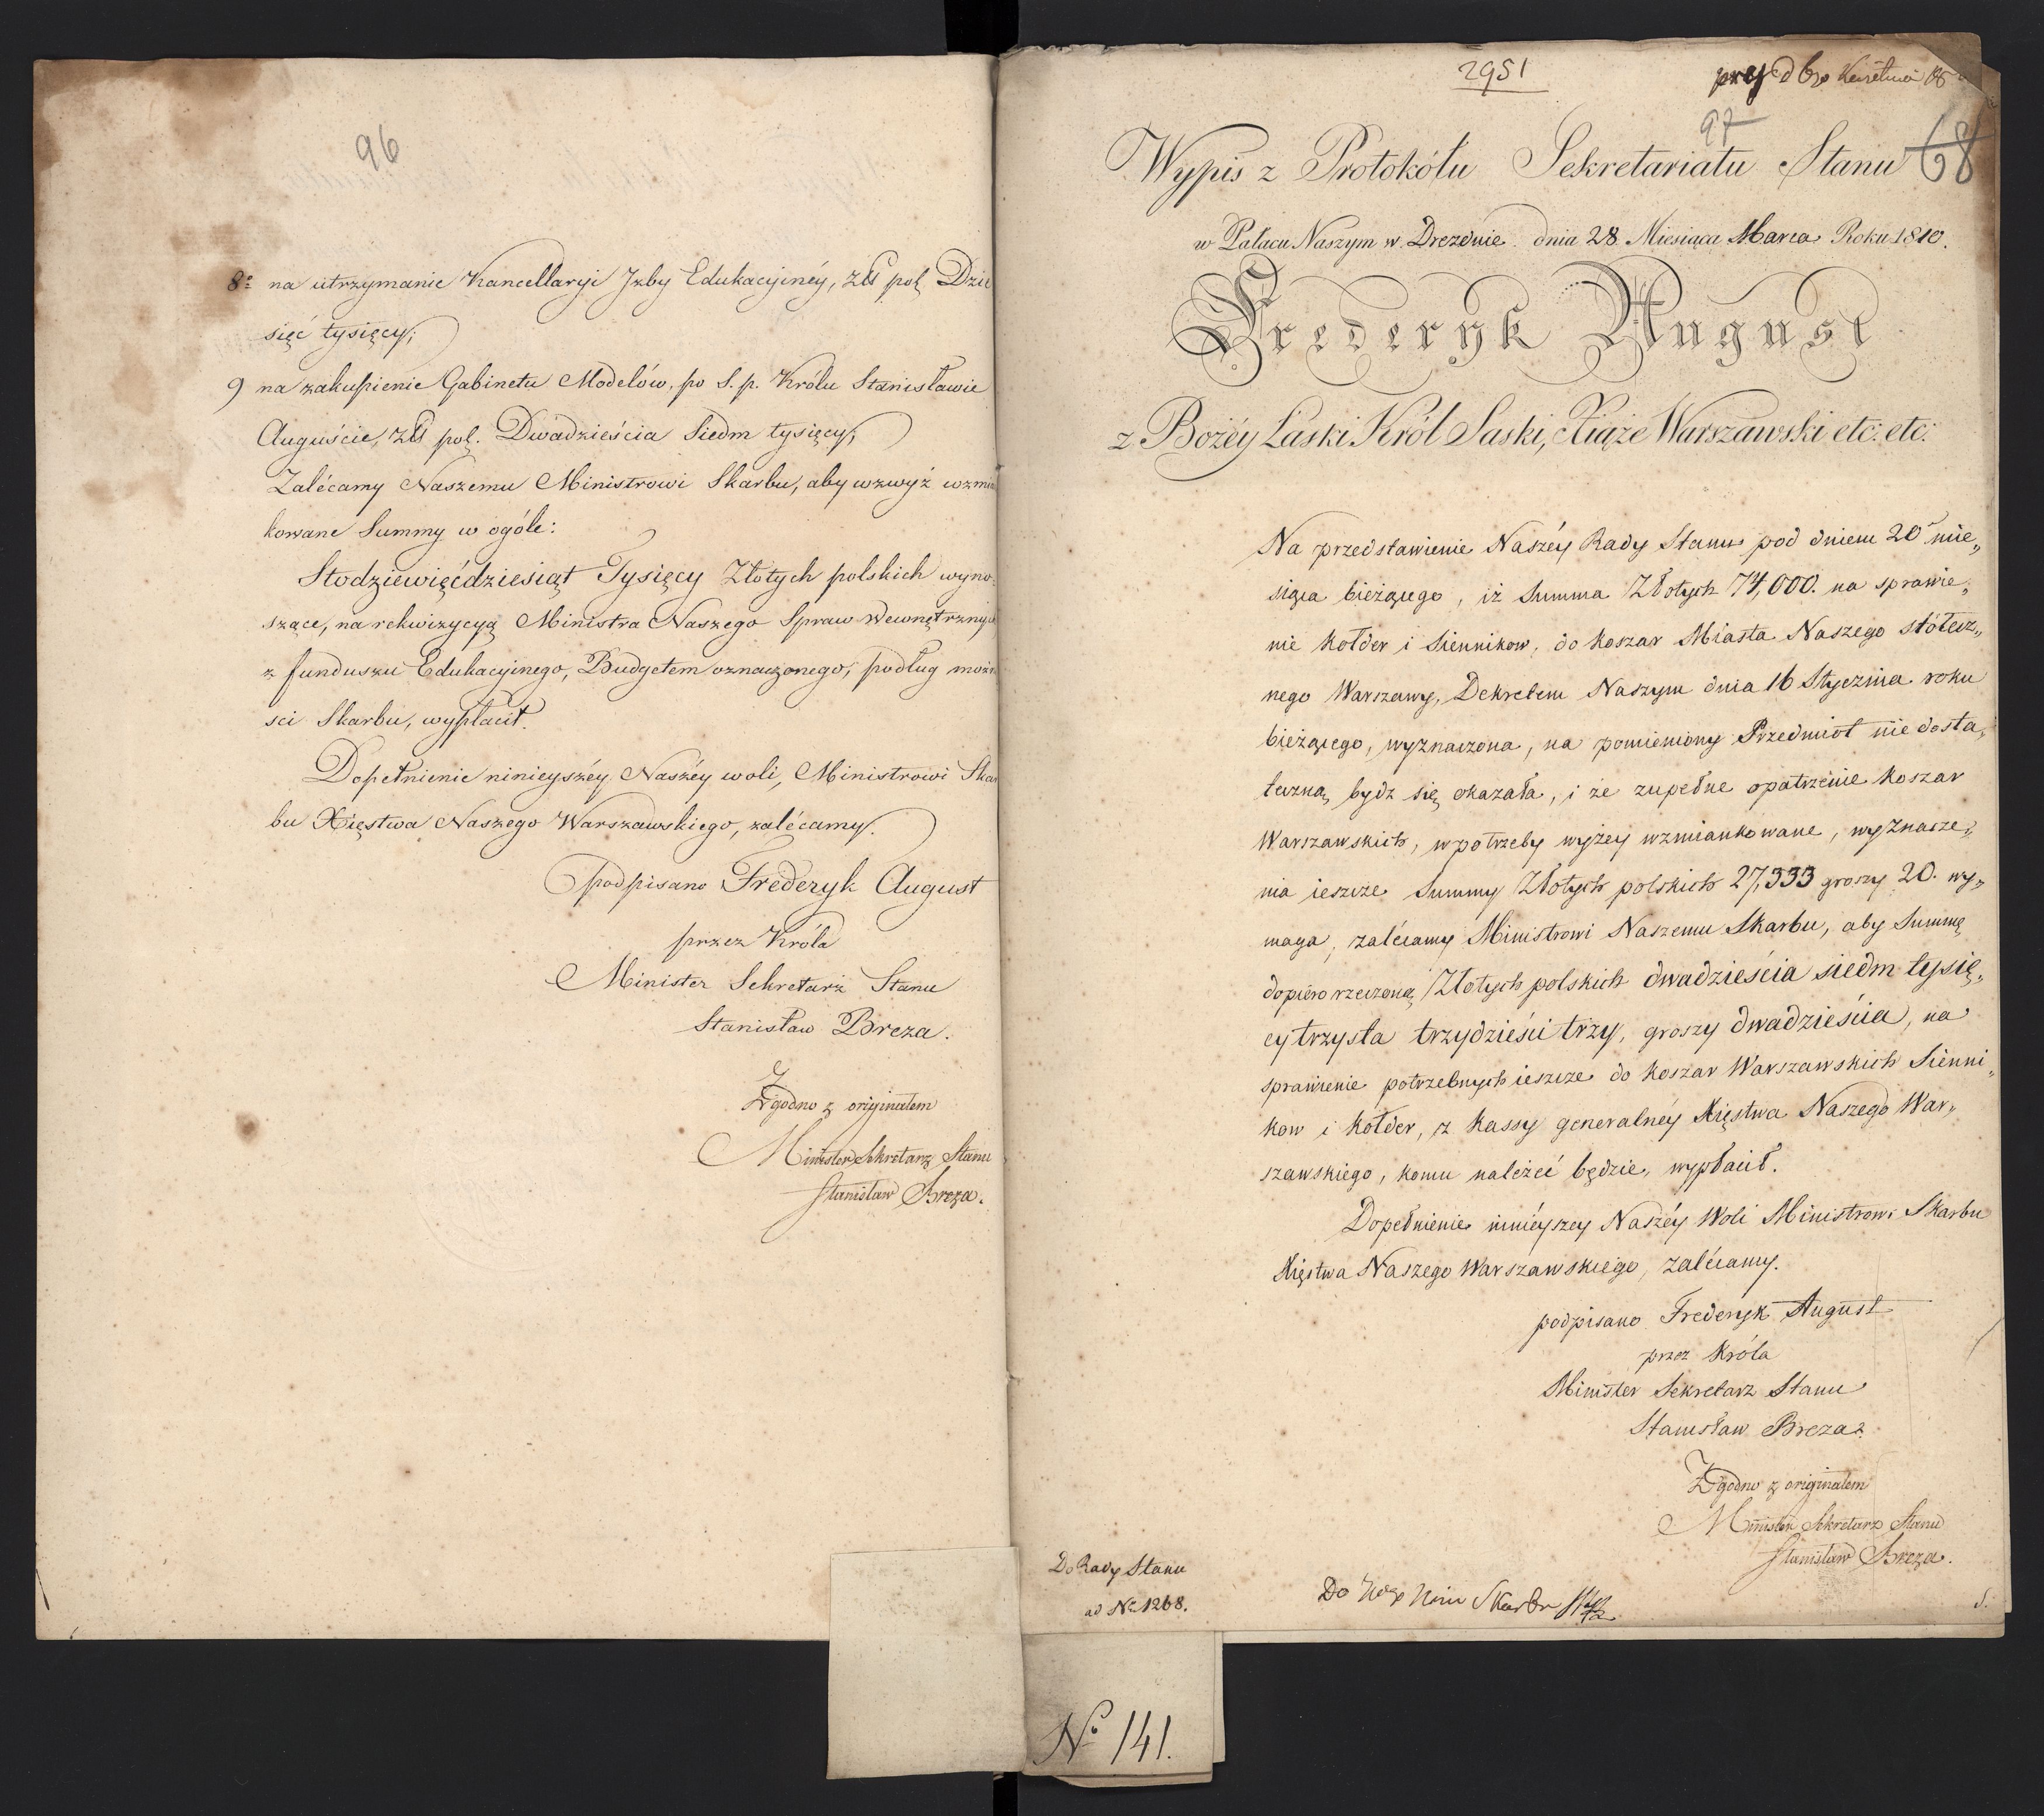 96
8° na utrzymanie Kancellaryi Jzby Edukacyinéy, Złł pol. Dzie
sięć tysięcy;
9 na zakupienie Gabinetu Modelów, po S. p. Królu Stanisławie
Auguście, Złł pol. Dwadzieścia Siedm tysięcy;
Zalécamy Naszemu Ministrowi Skarbu, aby wzwyż wzmian
kowane Summy w ogóle:
Stodziewięćdziesiąt Tysięcy Złotych polskich wyno-
szące, na rekwizycyą Ministra Naszego Spraw Wewnętrznych
z funduszu Edukacyinego, Budgetem oznaczonego, podług możno
sci Skarbu, wypłacił.
Dopełnienie ninieyszéy Naszéy woli, Ministrowi Skar
bu Xięstwa Naszego Warszawskiego, zalécamy.
podpisano Frederyk August
przez Króla
Minister Sekretarz Stanu
Stanisław Breza.
Zgodno z originałem
Minister Sekretarz Stanu
Stanisław Breza.
2951
97
68
Wypis z Protokółu Sekretariatu Stanu
w Pałacu Naszym w Dreznie dnia 28 Miesiąca Marca Roku 1810.
Frederyk August
z Bożéy Łaski Król Saski, Xiąże Warszawski etc: etc:
Na przedstawienie Naszéy Rady Stanu pod dniem 20 mie„
siąca bieżącego, iż Summa Złotych 74,000. na sprawie„
nie Kołder i Siennikow, do Koszar Miasta Naszego stołecz„
nego Warszawy, Dekretem Naszym dnia 16 Stycznia roku
bieżącego, wyznaczona, na pomieniony Przedmiot niedosta„
teczną bydz się okazała, i że zupełne opatrzenie Koszar
Warszawskich, w potrzeby wyżey wzmiankowane, wyznacze„
nia ieszcze Summy Złotych polskich 27,333 groszy 20. wy„
maga, zalécamy Ministrowi Naszemu Skarbu, aby Summę
dopiero rzeczoną Złotych polskich dwadzieścia siedm tysię„
cy trzysta trzydzieści trzy, groszy dwadzieścia, na
sprawienie potrzebnych ieszcze do Koszar Warszawskich Sienni„
kow i Kołder, z Kassy generalnéy Xięstwa Naszego War„
szawskiego, komu należeć będzie, wypłacił.
Dopełnienie ninieyszey Naszéy Woli Ministrowi Skarbu
Xięstwa Naszego Warszawskiego, zalécamy.
podpisano Frederyk August
przez Króla
Minister Sekretarz Stanu
Stanisław Breza.
Zgodno z originałem
Minister Sekretarz Stanu
Stanisław Breza.
Do Rady Stanu
ad No 1268.
Do Skarbu
No 141.